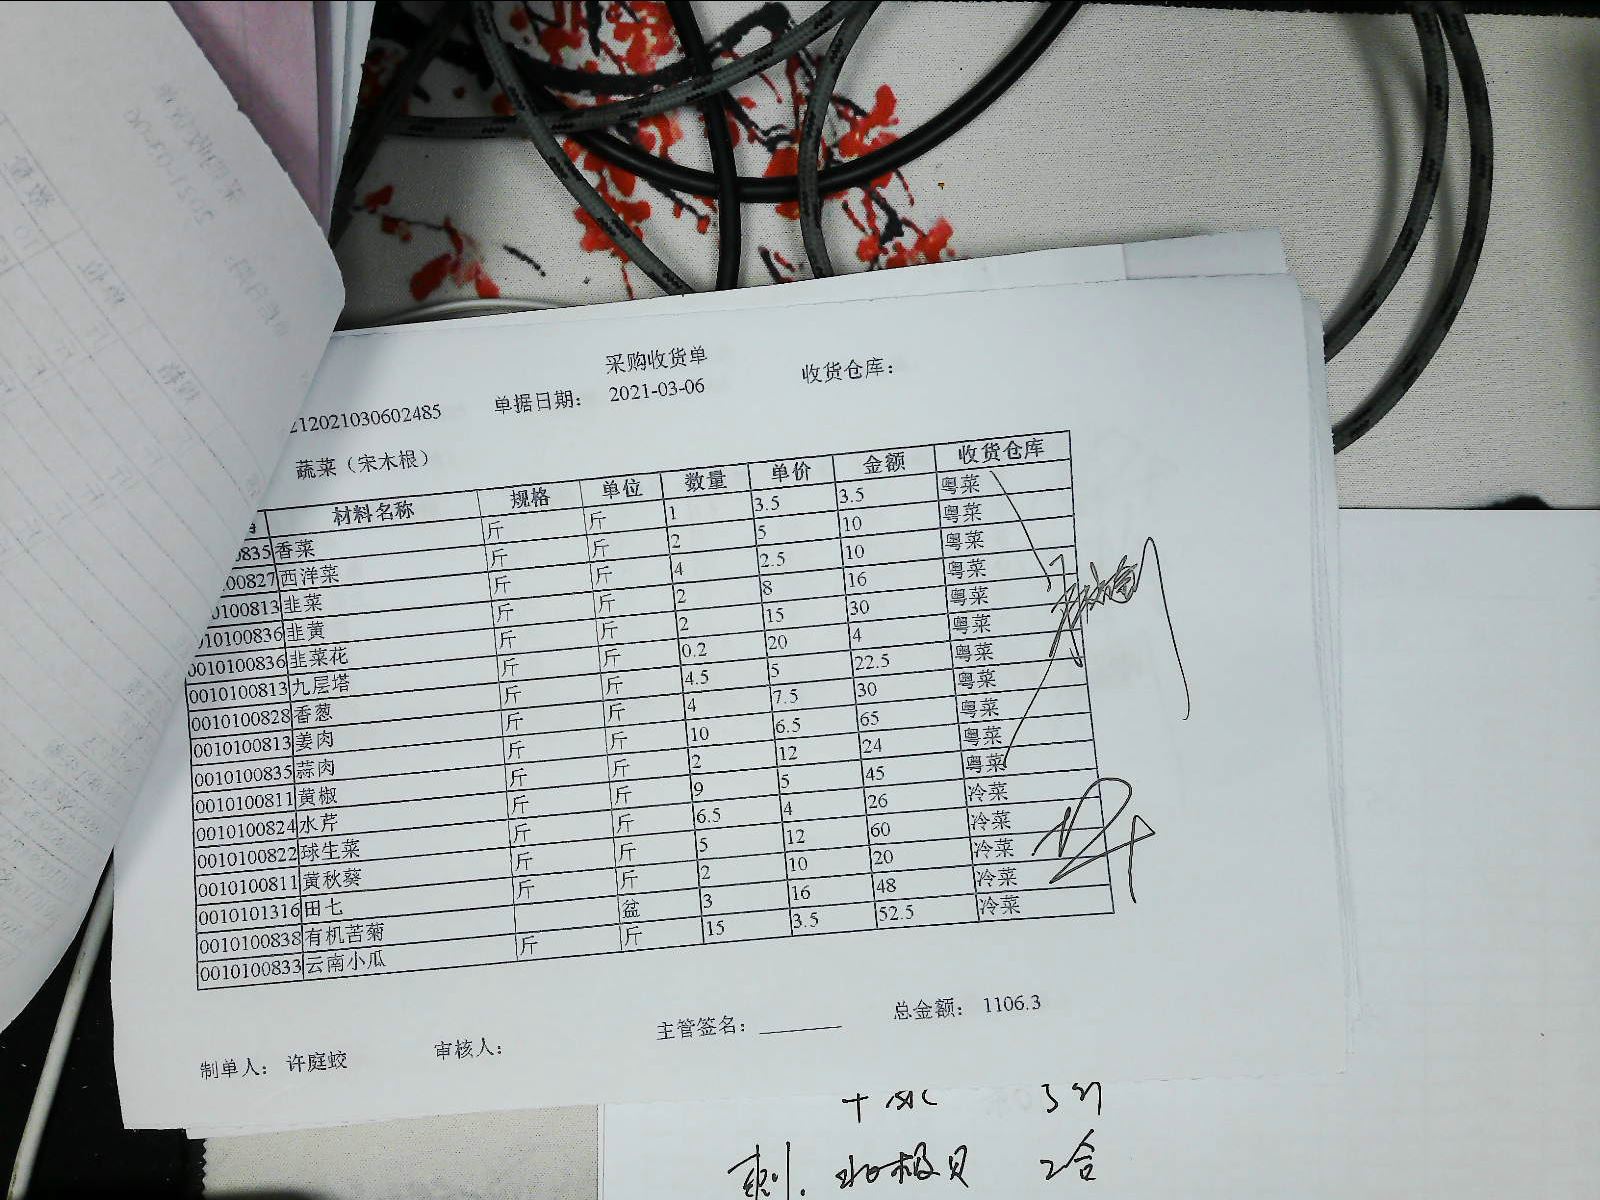 采购收货单
212021030602485 单据日期: 2021-03-06 收货仓库:
蔬菜（宋木根）
材料名称 规格 单位 数量 单价 金额 收货仓库
0835 香菜 斤 斤 1 3.5 3.5 粤菜
00827 西洋菜 斤 斤 2 5 10 粤菜
0100813 韭菜 斤 斤 4 2.5 10 粤菜
010100836 韭黄 斤 斤 2 8 16 粤菜
0010100836 韭菜花 斤 斤 2 15 30 粤菜
0010100813 九层塔 斤 斤 0.2 20 4 粤菜
0010100828 香葱 斤 斤 4.5 5 22.5 粤菜
0010100813 姜肉 斤 斤 4 7.5 30 粤菜
0010100835 蒜肉 斤 斤 10 6.5 65 粤菜
0010100811 黄椒 斤 斤 2 12 24 粤菜
0010100824 水芹 斤 斤 9 5 45 粤菜
0010100822 球生菜 斤 斤 6.5 4 26 冷菜
0010100811 黄秋葵 斤 斤 5 12 60 冷菜
0010101316 田七 斤 斤 2 10 20 冷菜
0010100838 有机苦菊 盆 3 16 48 冷菜
0010100833 云南小瓜 斤 斤 15 3.5 52.5 冷菜
主管签名: 总金额: 1106.3
制单人: 许庭蛟 审核人:
2合